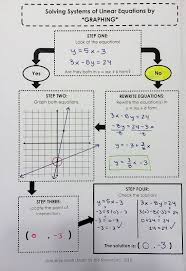 Solving Systems of Linear Equations by
"GRAPHING"
STEP ONE:
Look at the equations!
y = 5x - 3
3x - 8y = 24
Are they both in y = mx + b form?
Yes
No
STEP TWO:
Graph both equations.
REWRITE EQUATIONS:
Rewrite the equation(s) in
y = mx + b form.
3x - 8y = 24
y = 3/8 x - 3
STEP THREE:
Locate the point of
intersection.
(0, -3)
STEP FOUR:
Check the solution.
y = 5x - 3
3x - 8y = 24
-3 = 5(0) - 3
-3 = -3
24 = 24
The solution is: (0, -3)